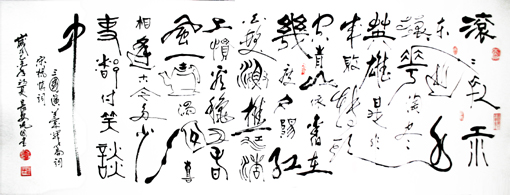 滚滚长江
东逝水
浪花淘尽
英雄是非
成败转头
空青山依旧在
几度夕阳红
白发渔樵江渚
上惯看秋月春
风一壶浊酒喜
相逢古今多少
事都付笑谈
中
三国演义开篇词